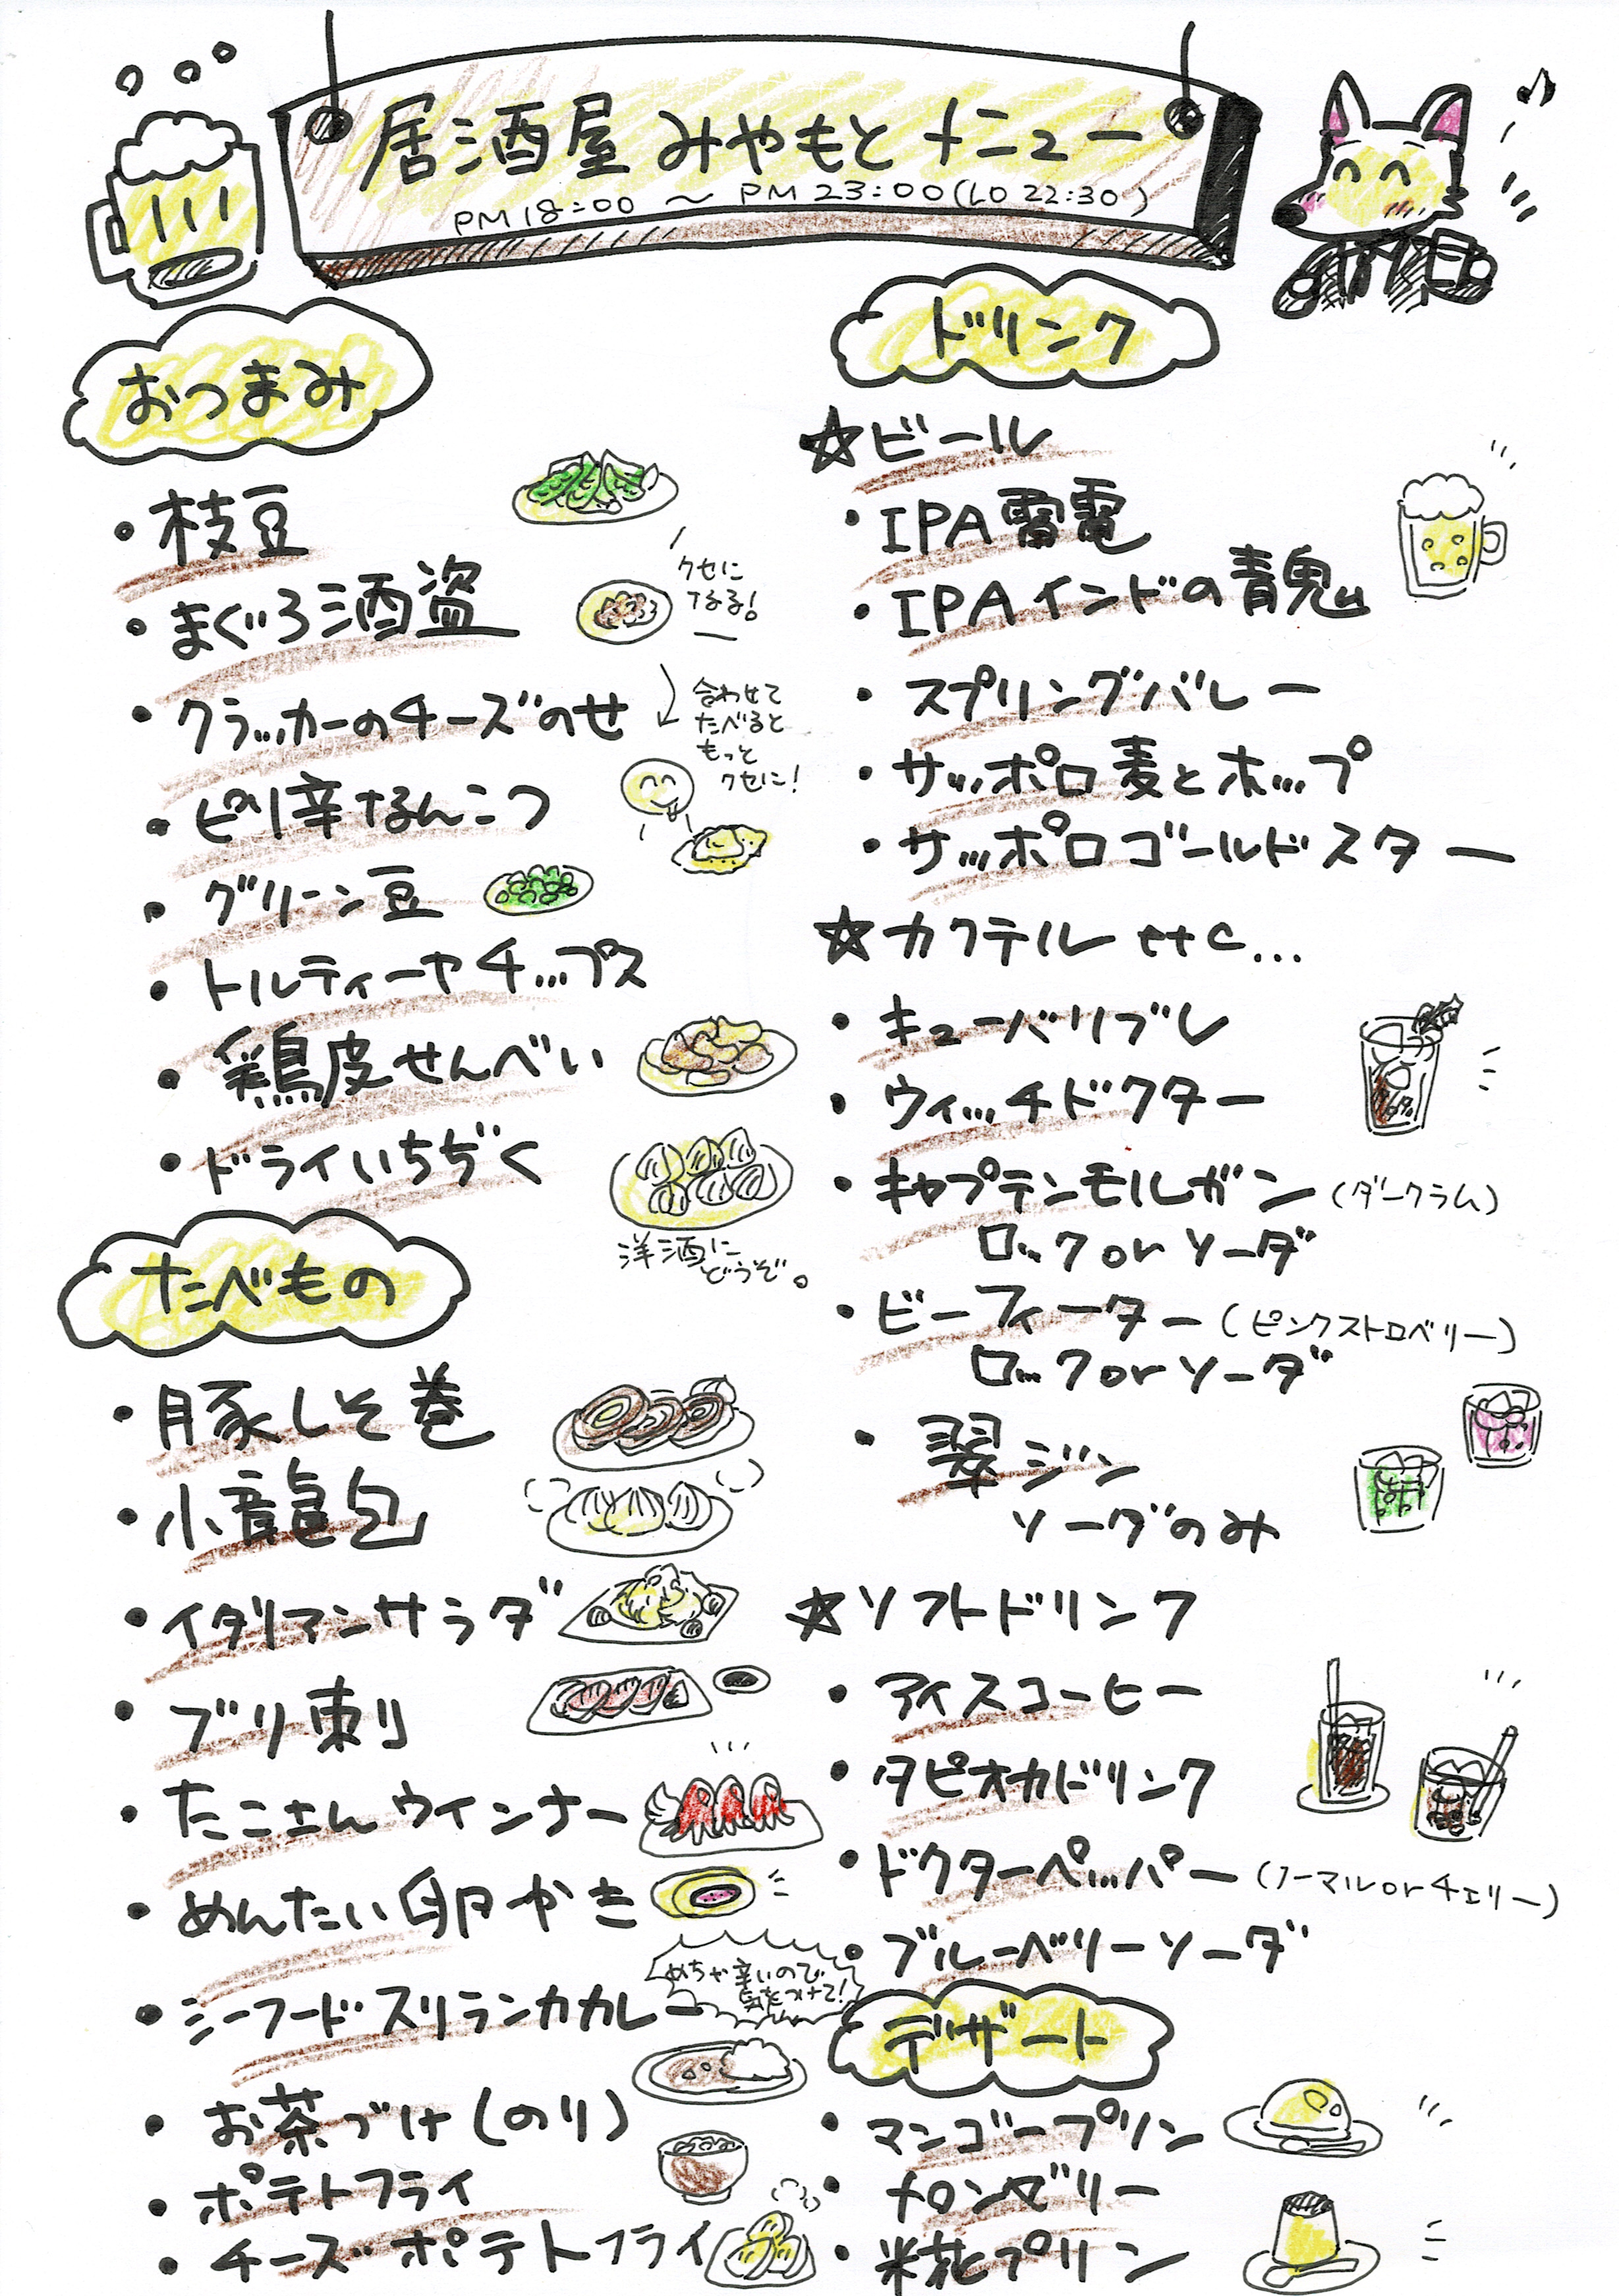 居酒屋 みやもと メニュー
PM 18:00 ～ PM 23:00 (LO 22:30)
おつまみ
・枝豆
・まぐろ酒盗
クセに
なる!
・クラッカーのチーズのせ
合わせて
たべると
もっと
クセに!
・ピリ辛なんこつ
・グリーン豆
・トルティーヤチップス
・鶏皮せんべい
・ドライいちぢく
洋酒に
どうぞ。
たべもの
・豚しそ巻
・小龍包
・イタリアンサラダ
・ブリ刺
・たこさんウインナー
・めんたい卵やき
・シーフードスリランカカレー
めちゃ辛いので
気をつけて!
・お茶づけ(のり)
・ポテトフライ
・チーズポテトフライ
ドリンク
☆ビール
・IPA雷電
・IPAインドの青鬼
・スプリングバレー
・サッポロ麦とホップ
・サッポロゴールドスター
☆カクテル etc...
・キューバリブレ
・ウィッチドクター
・キャプテンモルガン(ダークラム)
ロック or ソーダ
・ビーフィーター(ピンクストロベリー)
ロック or ソーダ
・翠ジン
ソーダのみ
☆ソフトドリンク
・アイスコーヒー
・タピオカドリンク
・ドクターペッパー(ノーマル or チェリー)
・ブルーベリーソーダ
デザート
・マンゴープリン
・メロンゼリー
・米花プリン